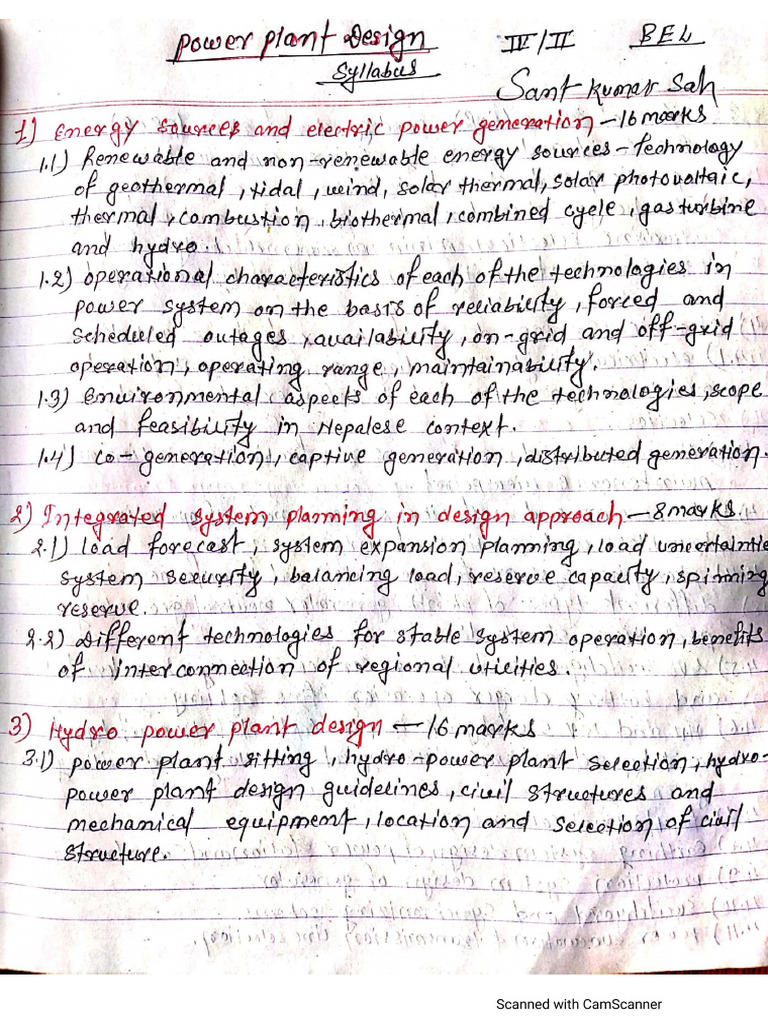 Power plant Design IV/II BEL
Syllabus
Sant Kumar Sah
1) Energy sources and electric power generation - 16 marks
1.1) Renewable and non-renewable energy sources - Technology
of geothermal, tidal, wind, solar thermal, solar photovoltaic,
thermal, combustion, biothermal, combined cycle, gas turbine
and hydro.
1.2) Operational characteristics of each of the technologies in
power system on the basis of reliability, forced and
scheduled outages, availability, on-grid and off-grid
operation, operating range, maintainability.
1.3) Environmental aspects of each of the technologies, scope
and feasibility in Nepalese context.
1.4) Co-generation, captive generation, distributed generation.
2) Integrated system planning in design approach - 8 marks.
2.1) load forecast, system expansion planning, load uncertaintie
system security, balancing load, reserve capacity, spinning
reserve.
2.2) Different technologies for stable system operation, benefits
of interconnection of regional uticities.
3) Hydro power plant design - 16 marks
3.1) power plant sitting, hydro-power plant selection, hydro-
power plant design guidelines, civil structures and
mechanical equipment, location and selection of civil
structure.
Scanned with CamScanner